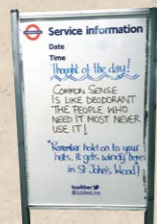 Service information
Date
Time
Thought of the day!
COMMON SENSE
IS LIKE DEODORANT
THE PEOPLE WHO
NEED IT MOST NEVER
USE IT!
*Remember hold on to your
hats, it gets windy here
in St John's Wood!
twitter